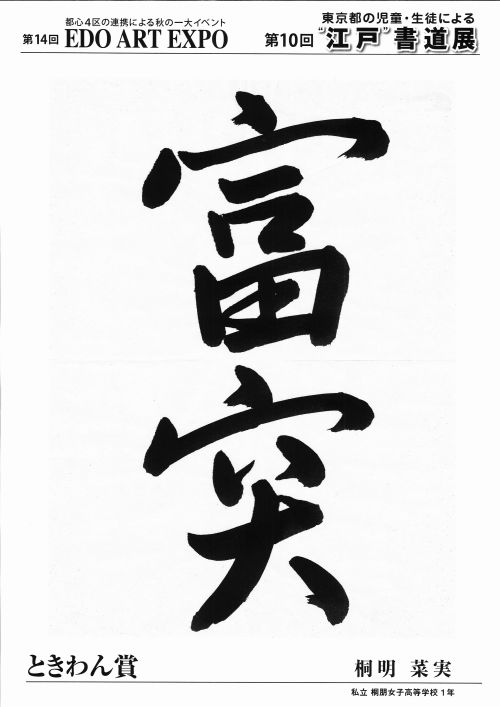 都心4区の連携による秋の一大イベント
第14回 EDO ART EXPO
東京都の児童・生徒による
第10回 “江戸”書道展
富突
ときわん賞
桐明 菜実
私立 桐朋女子高等学校1年